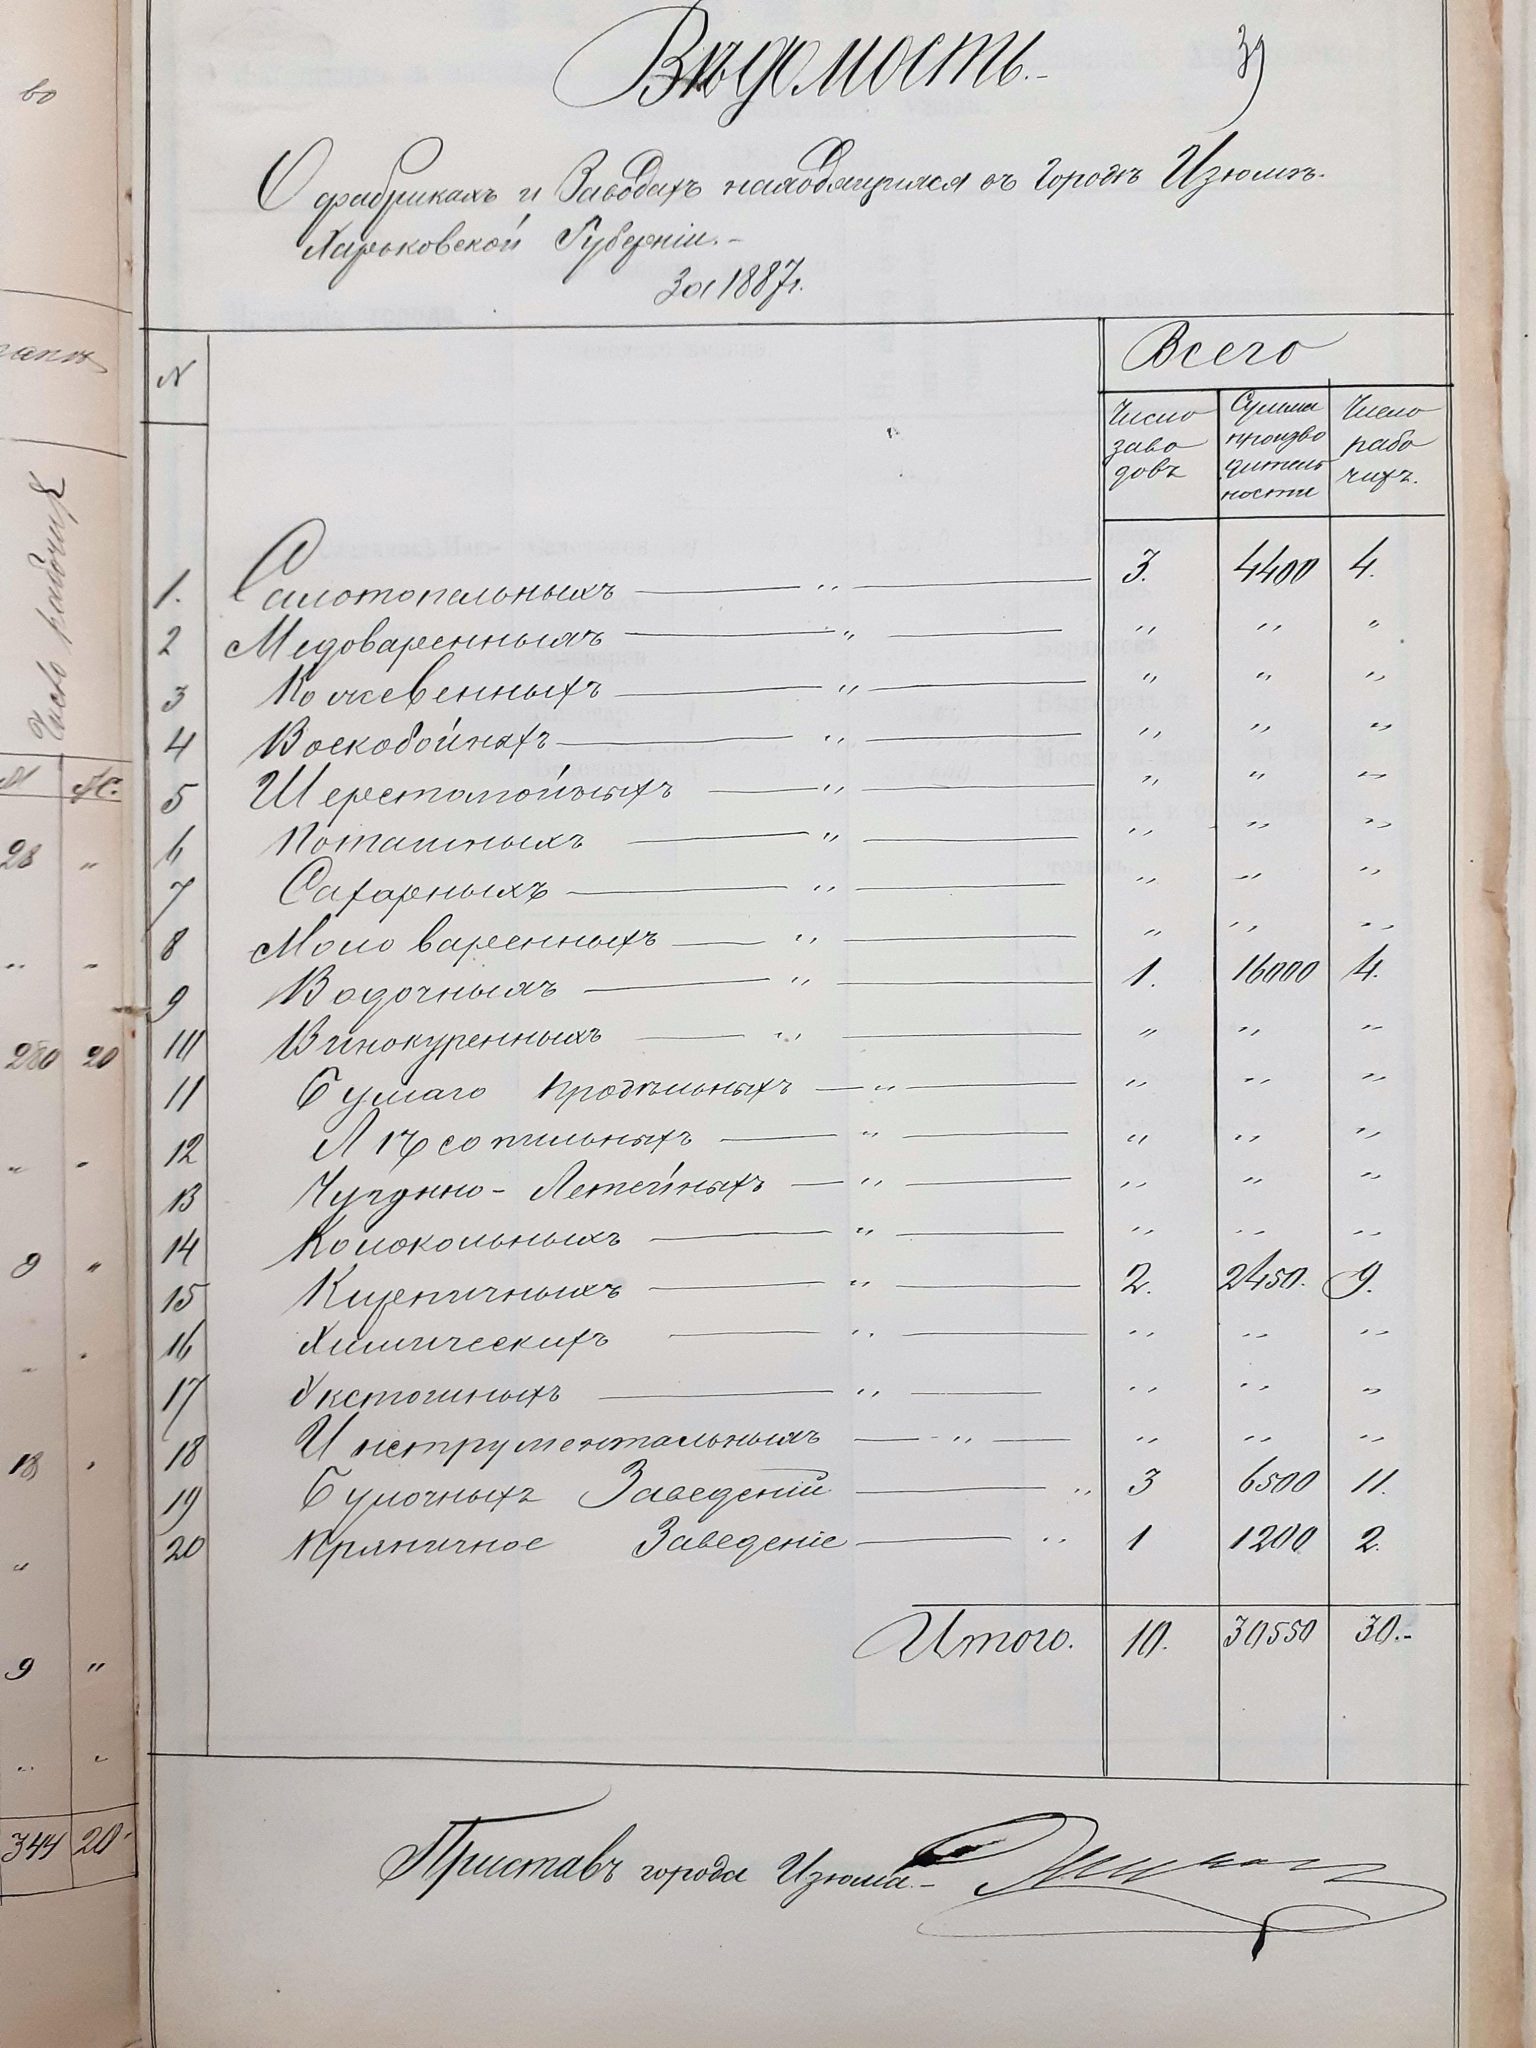 во
39
Вѣдомость.-
О фабрикахъ и Заводахъ находящихся въ городѣ Изюмѣ.
Харьковской Губерніи.-
За 1887г.
N
Всего
Число заводовъ
Сумма производительности
Число рабочихъ.
1. Салотопельныхъ — „ — 3. 4400 4.
2 Медоваренныхъ — „ — „ „ „
3 Кожевенныхъ — „ — „ „ „
4 Воскобойныхъ — „ — „ „ „
5 Шерстомойныхъ — „ — „ „ „
6 Поташныхъ — „ — „ „ „
7 Сахарныхъ — „ — „ „ „
8 Мыловаренныхъ — „ — „ „ „
9 Водочныхъ — „ — 1. 16000 4.
10 Винокуренныхъ — „ — „ „ „
11 Бумаго прядильныхъ — „ — „ „ „
12 Лѣсопильныхъ — „ — „ „ „
13 Чугунно-Литейныхъ — „ — „ „ „
14 Колокольныхъ — „ — „ „ „
15 Кирпичныхъ — „ — 2. 2450. 9.
16 Химическихъ — „ — „ „ „
17 — „ — „ „ „
18 Инструментальныхъ — „ — „ „ „
19 Булочныхъ Заведеній — „ 3 6500 11.
20 Пряничное Заведеніе — „ 1 1200 2.
Итого. 10. 30550 30.-
Приставъ города Изюма.-
Число рабочихъ
28 „
„ „
280 20
„ „
9 „
„ „
18 „
„
9 „
„ „
344 20